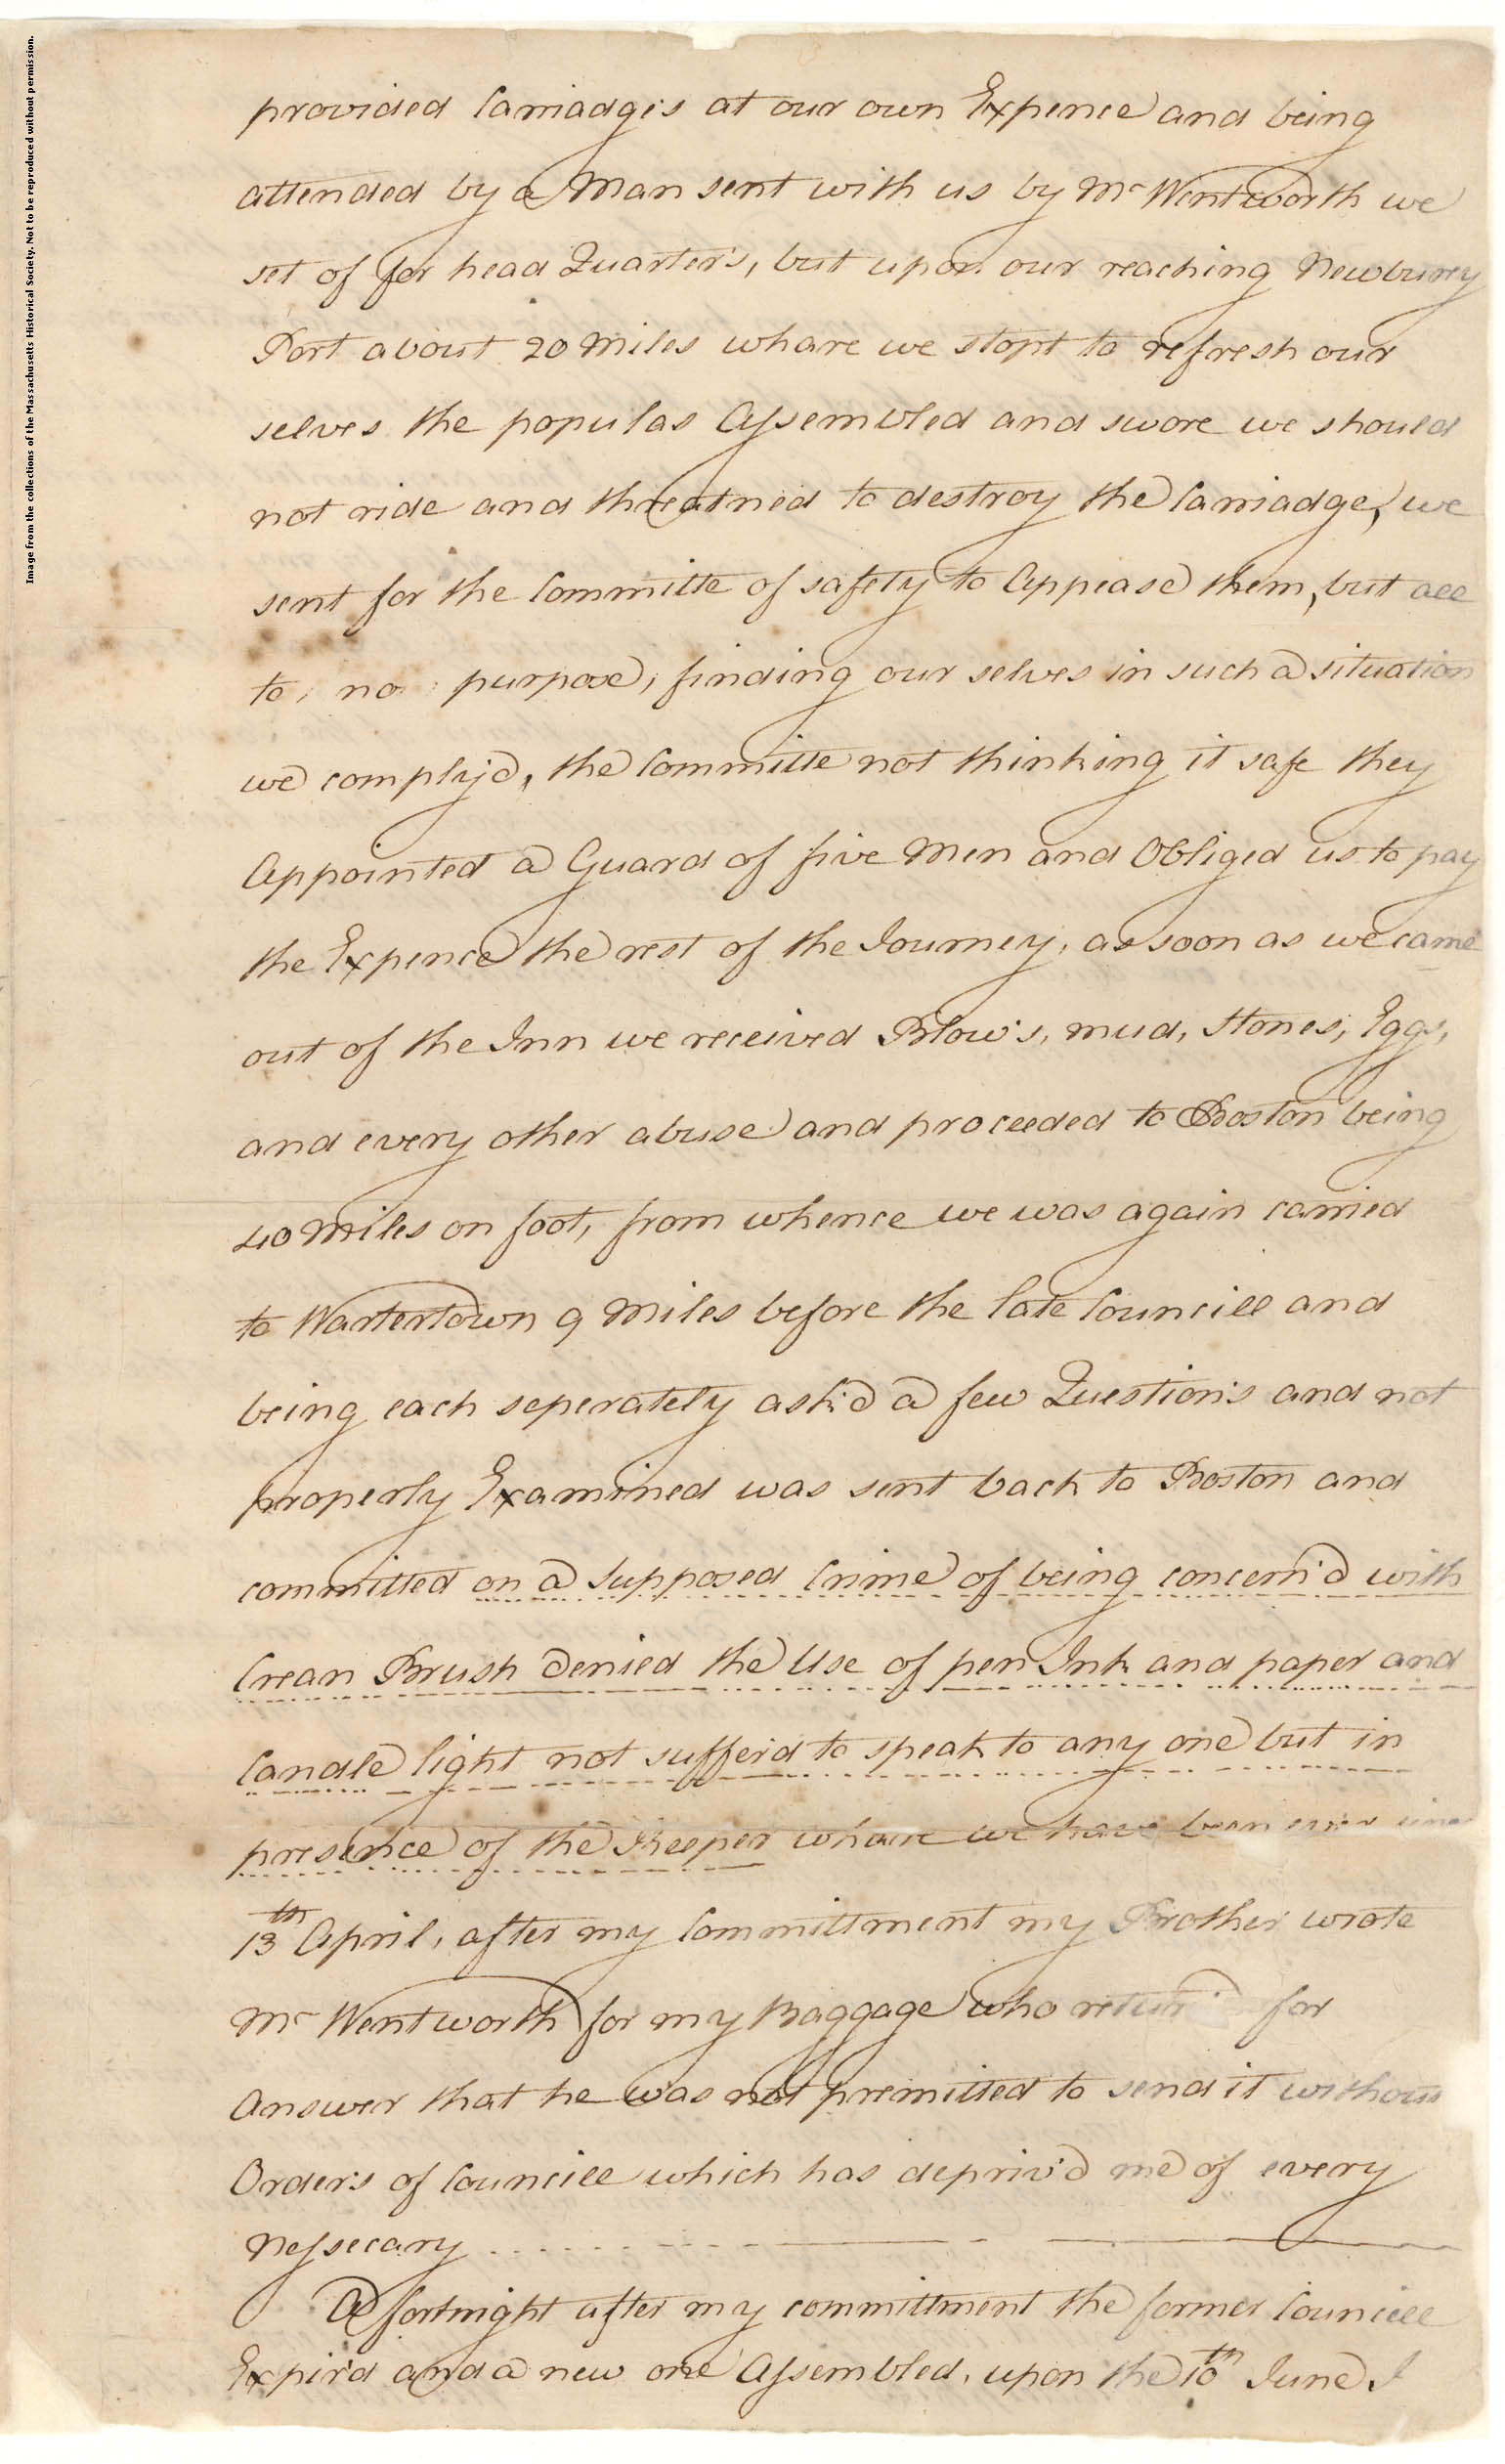 Image from the collections of the Massachusetts Historical Society. Not to be reproduced without permission.
provided Carriadge's at our own Expence and being
attended by a Man sent with us by Mr Wentworth we
set of for head Quarter's, but upon our reaching Newburey
Port about 20 Miles whare we stopt to refresh our
selves the populas Assembled and swore we should
not ride and threatned to destroy the Carriadge, we
sent for the Committe of safety to Appease them, but all
to no purpose, finding our selves in such a situation
we comply'd, the Committe not thinking it safe they
Appointed a Guard of five Men and Obliged us to pay
the Expence the rest of the Journey, as soon as we came
out of the Inn we received Blow's, mud, Stones, Eggs,
and every other abuse and proceeded to Boston being
40 Miles on foot, from whence we was again carried
to Wartertown 9 Miles before the late Councill and
being each seperately ask'd a few Question's and not
properly Examined was sent back to Boston and
committed on a supposed Crime of being concern'd with
Crean Brush denied the Use of pen Ink and paper and
Candle light not suffer'd to speak to any one but in
presence of the Keeper whare we have been ever since
13th April, after my Committment my Brother wrote
Mr Wentworth for my Baggage who return'd for
Answer that he was not premitted to send it without
Order's of Councill which has depriv'd me of every
Nessecary
A fortnight after my committment the former Councill
Expir'd and a new one Assembled, upon the 10th June I